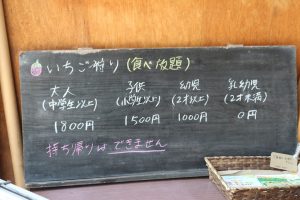 いちご狩り(食べ放題)
大人 子供 幼児 乳幼児
(中学生以上) (小学生以上) (2才以上) (2才未満)
1800円 1500円 1000円 0円
持ち帰りは できません